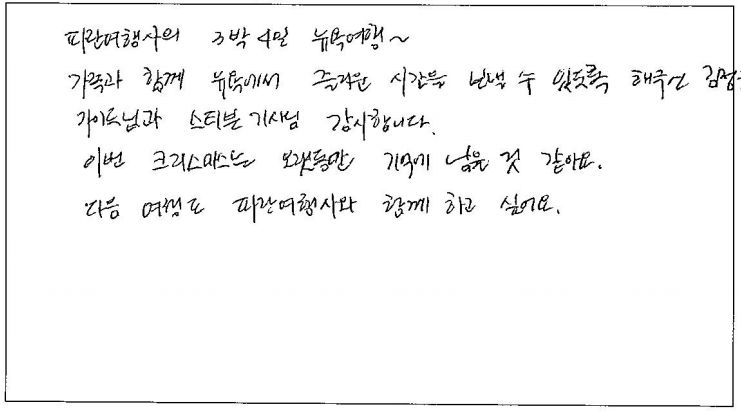 파란여행사의 3박 4일 뉴욕여행~
가족과 함께 뉴욕에서 즐거운 시간을 보낼 수 있도록 해주신 김정
가이드님과 스티븐 기사님 감사합니다.
이번 크리스마스는 오랫동안 기억에 남을 것 같아요.
다음 여행도 파란여행사와 함께 하고 싶어요.